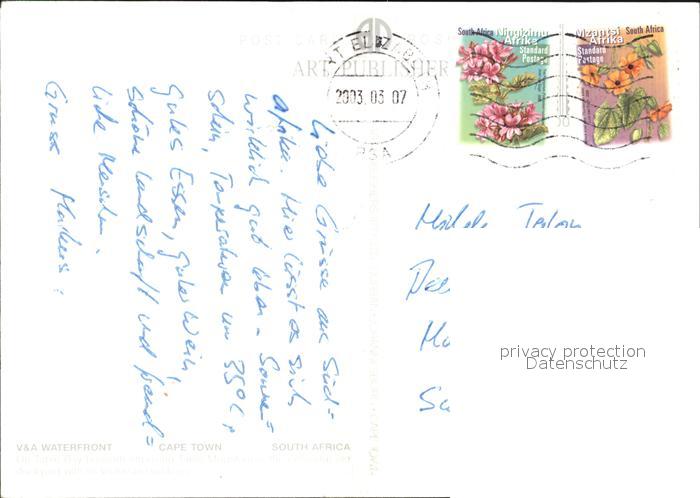 POST CARD
ART PUBLISHER
2003.03.07
RSA
South Africa
Ningizimu Afrika
Standard Postage
Mzantsi Afrika
South Africa
Standard Postage
Liebe Grüsse aus Süd=
afrika. Hier lässt es sich
wirklich gut leben - Sonnen=
schein, Temperaturen um 35°C,
Gutes Essen, guter Wein,
schöne Landschaft und freund=
liche Menschen.
Gruss Markus
privacy protection
Datenschutz
V&A WATERFRONT CAPE TOWN SOUTH AFRICA